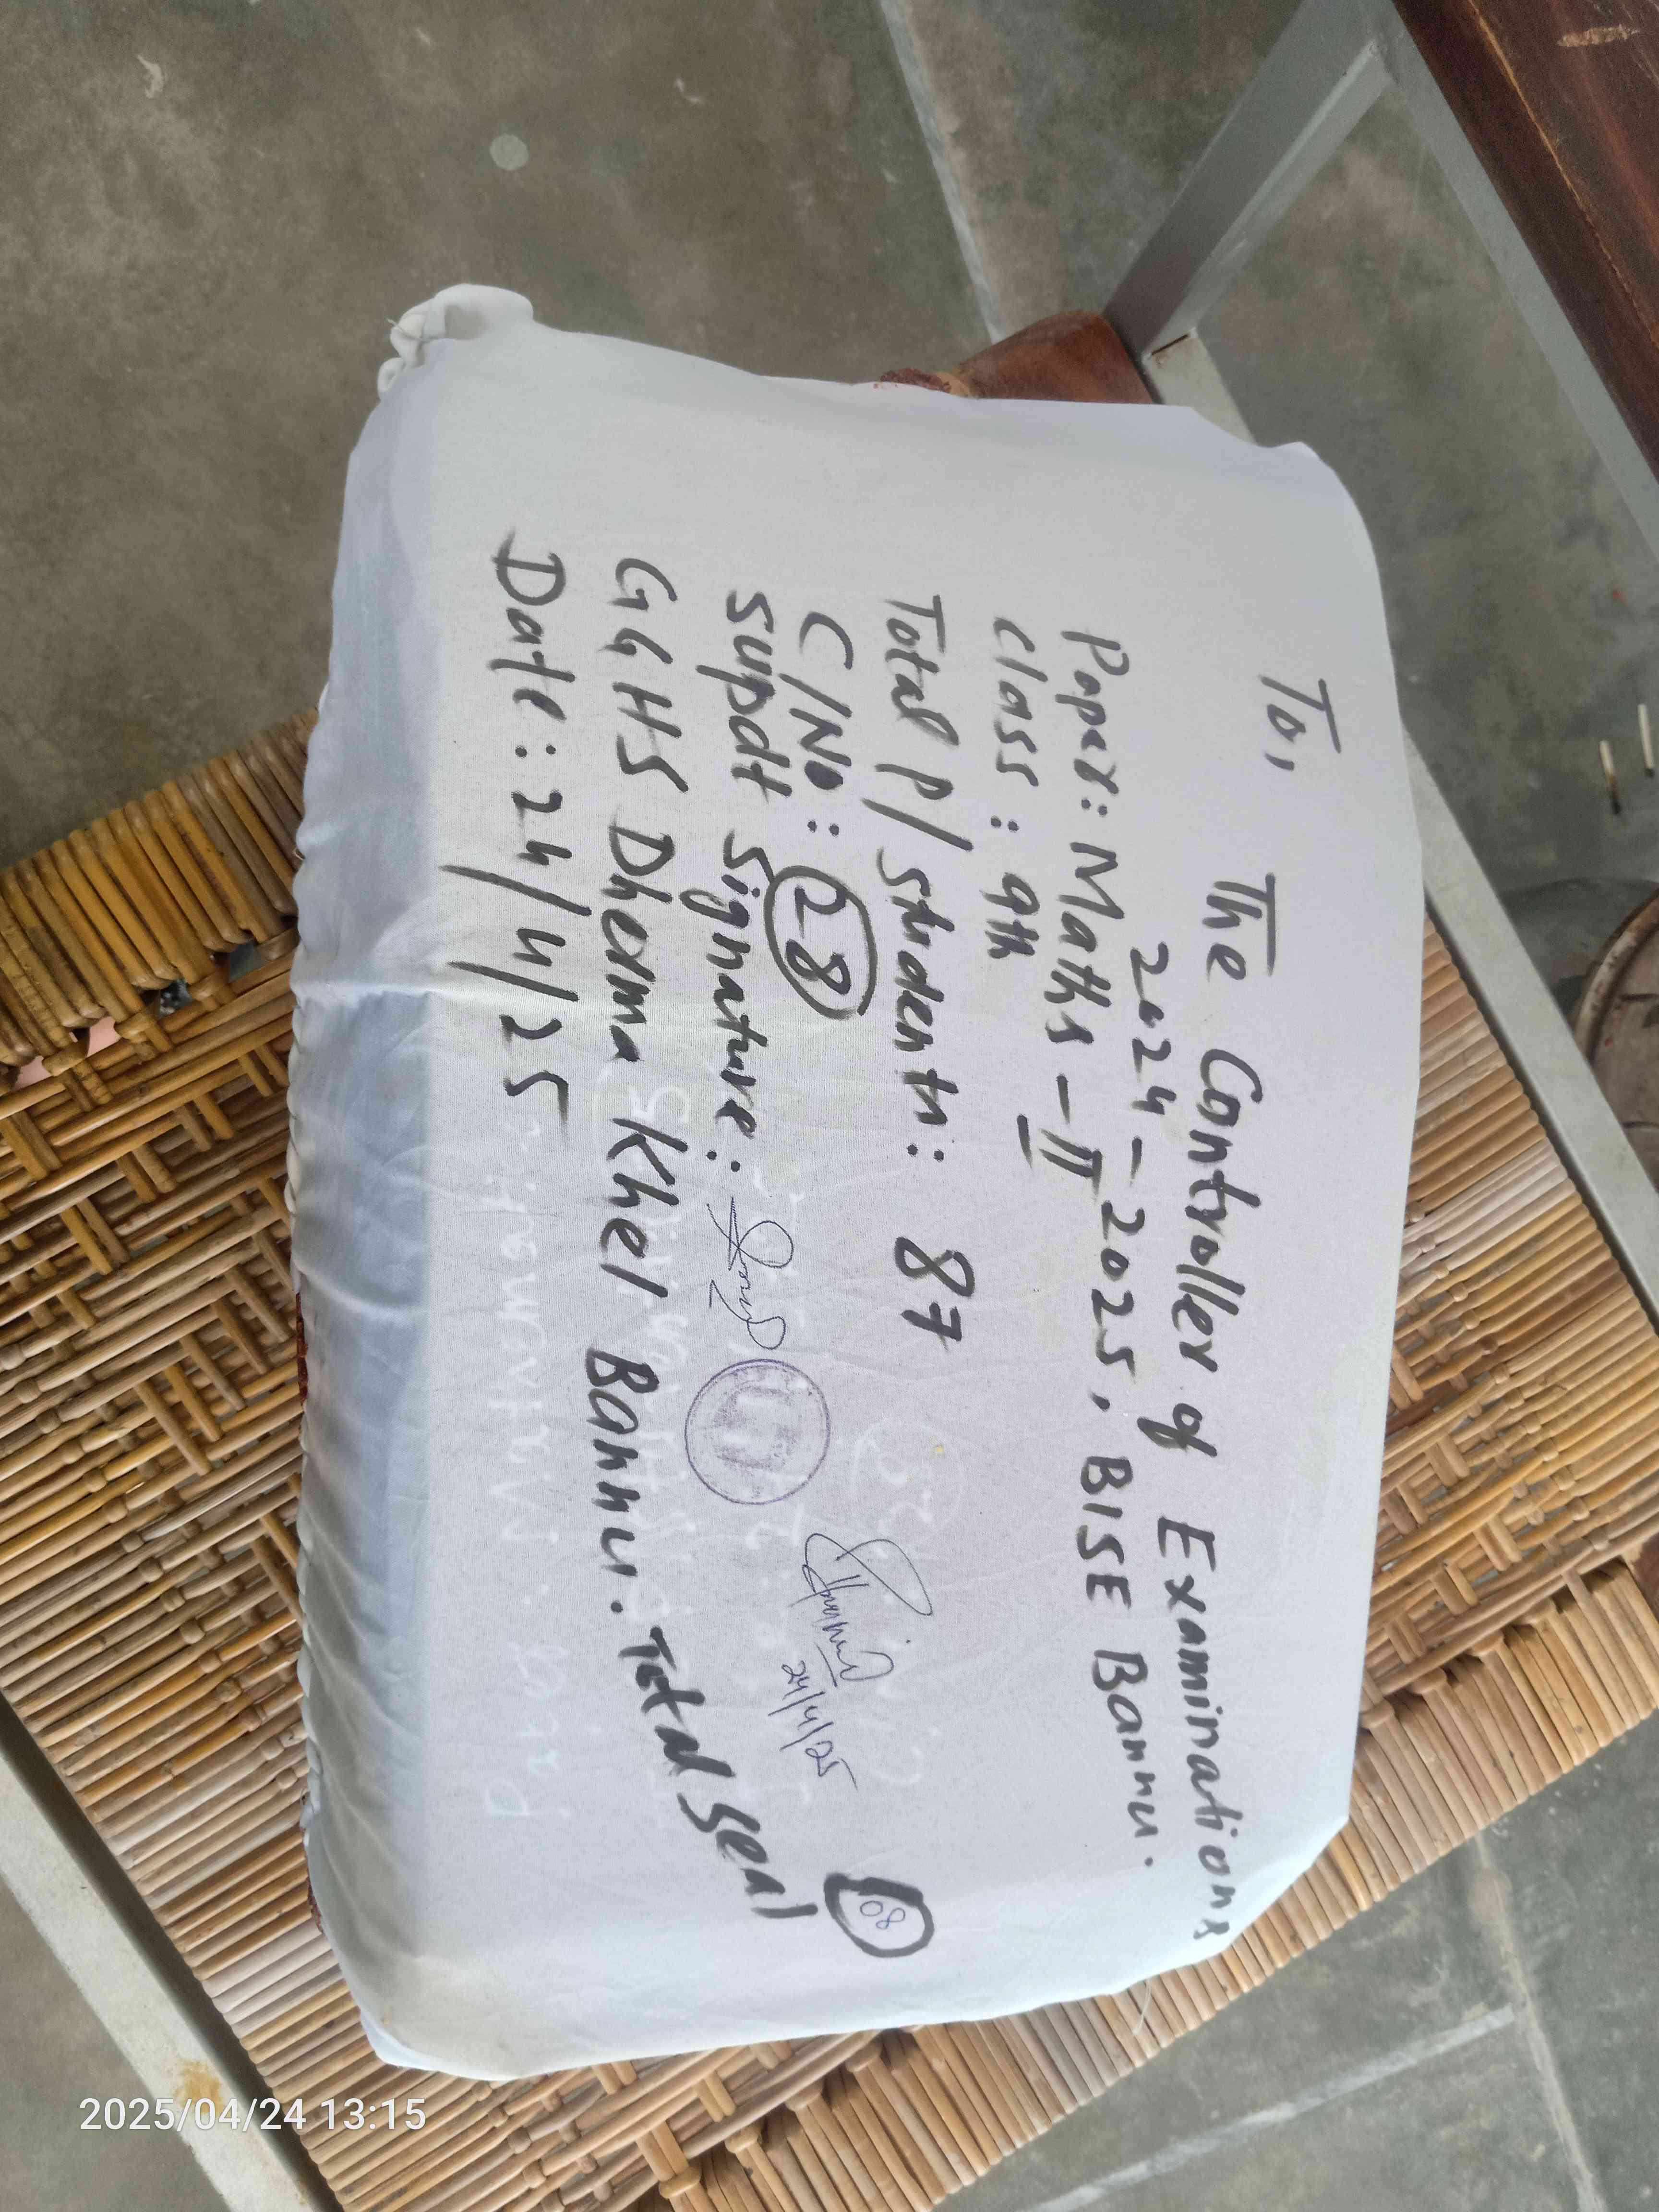 To,
The Controller of Examinations
2024 - 2025, BISE Bannu.
Paper: Maths - II
Class: 9th
Total P/students: 87
C/No: 28
Supdt Signature:
24/4/25
GGHS Dherma Khel Bannu. Total Seal
08
Date: 24/4/25
2025/04/24 13:15